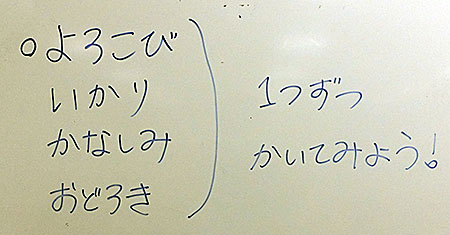 ○よろこび
いかり
かなしみ
おどろき
1つずつ
かいてみよう!